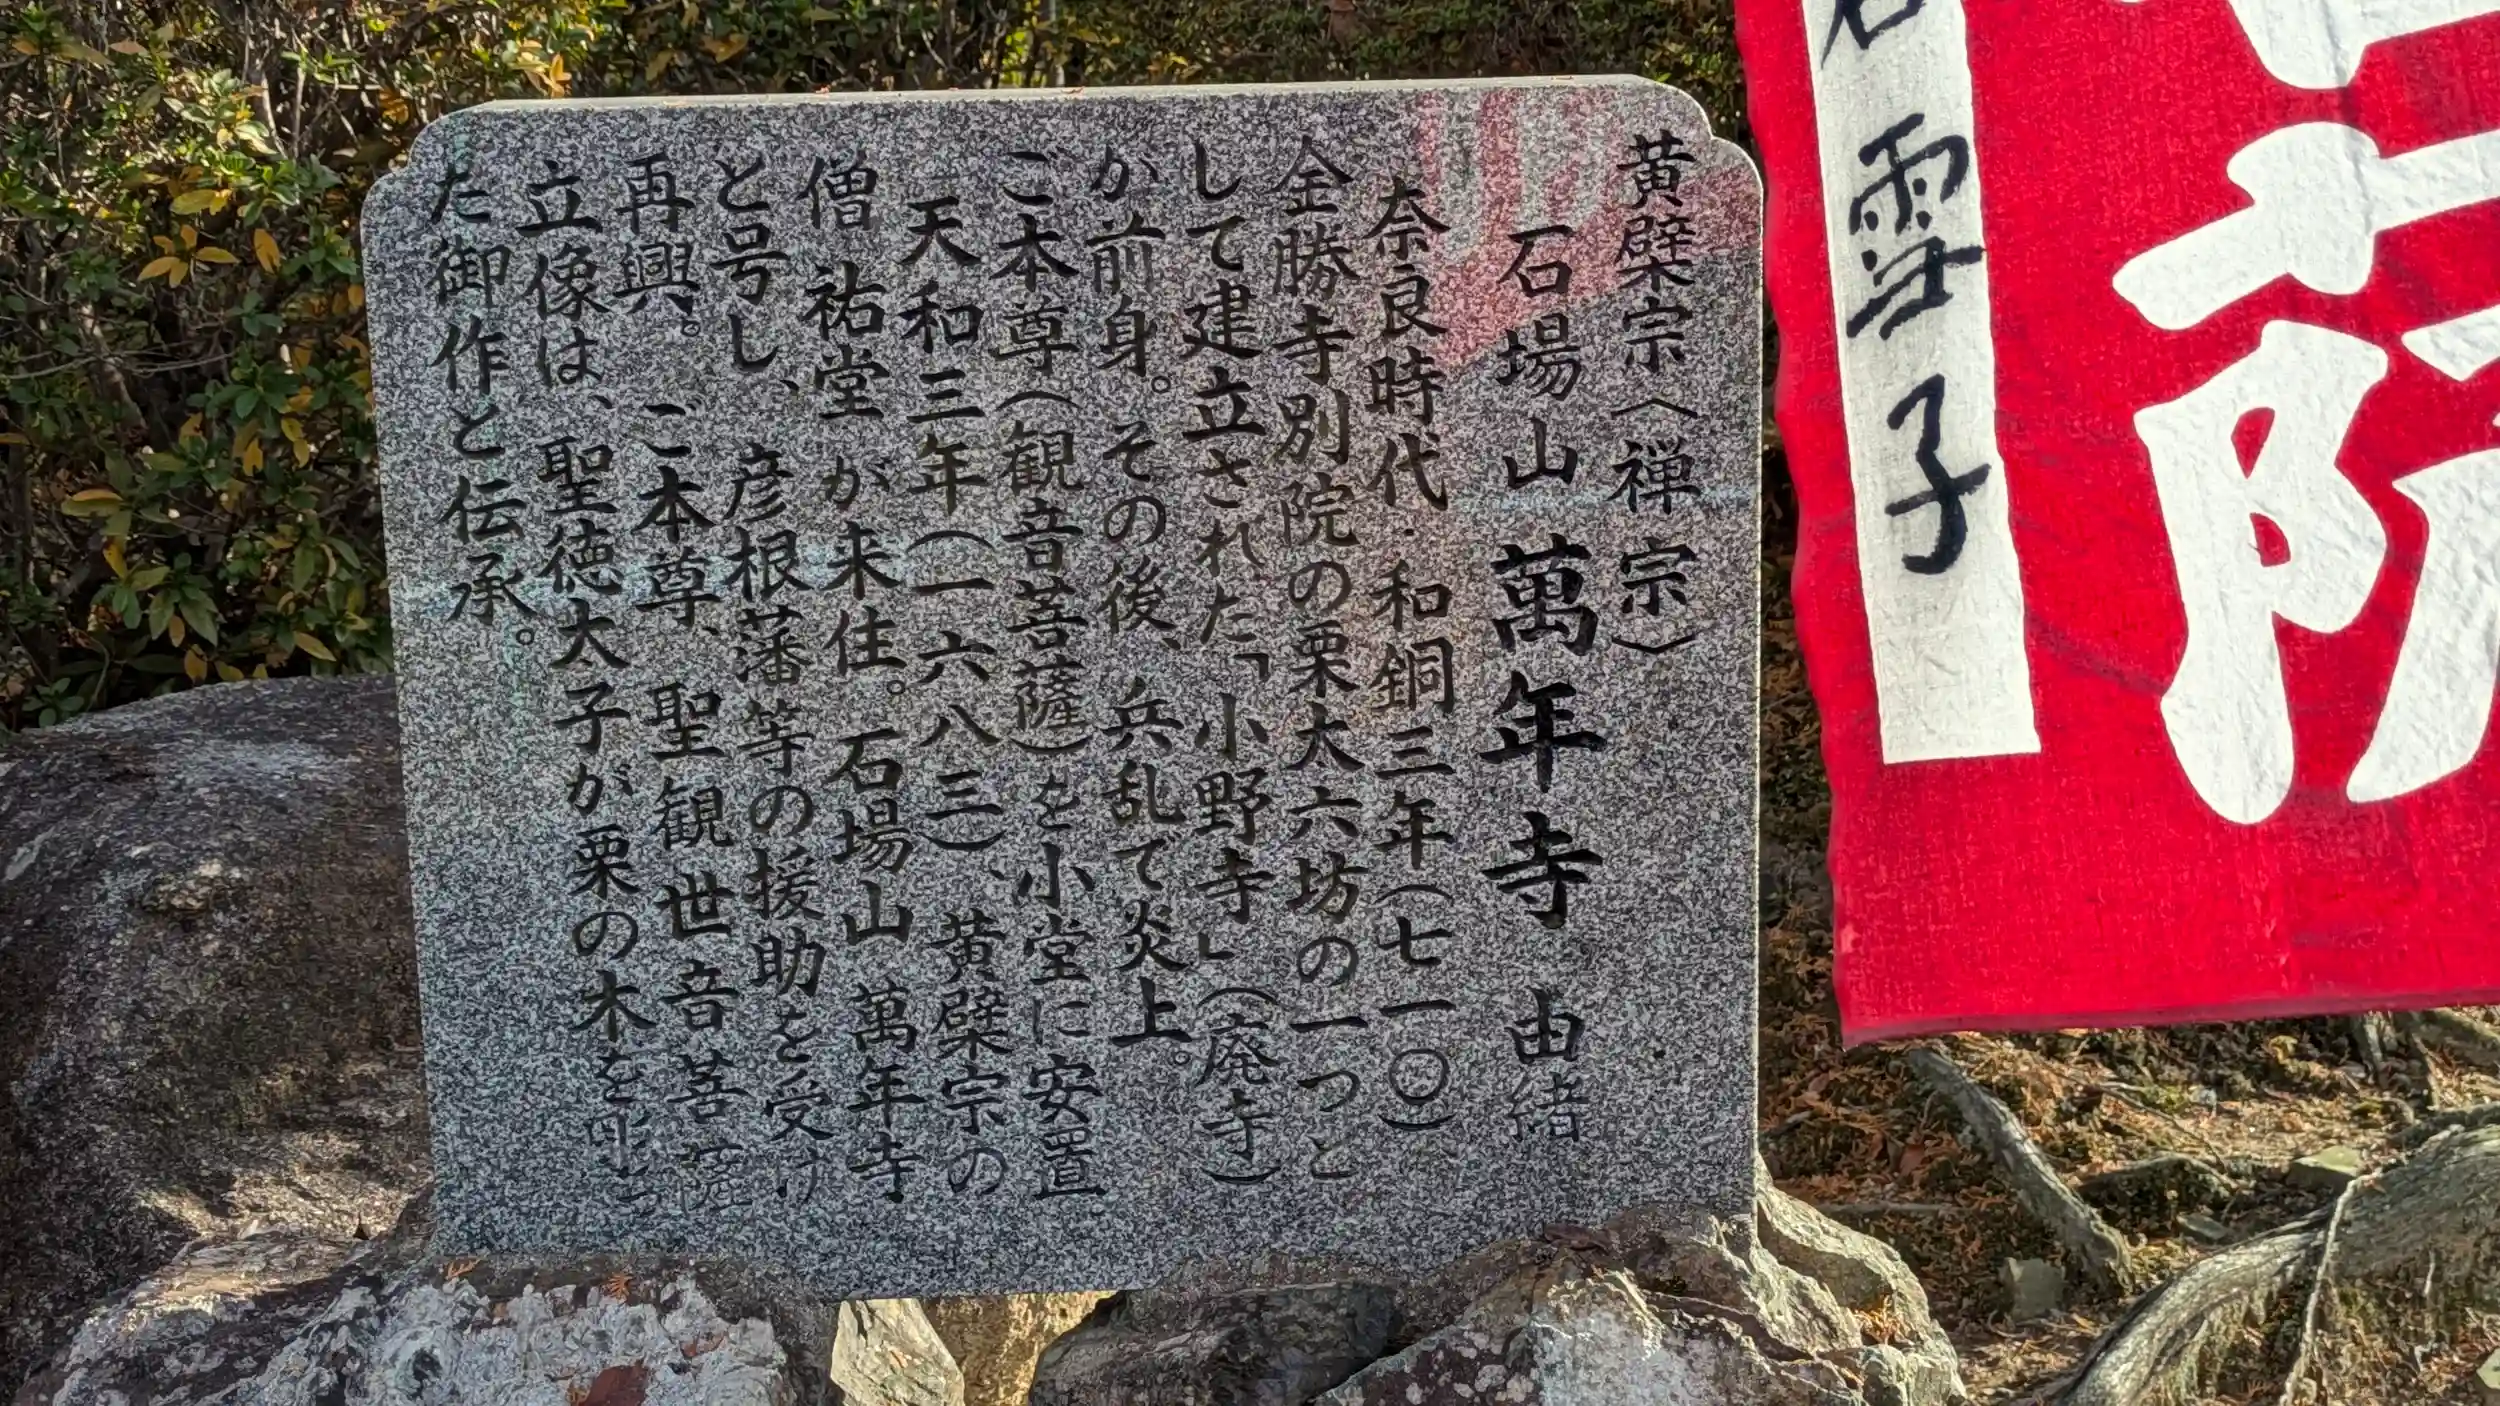 黄檗宗(禅宗)
石場山 萬年寺 由緒
奈良時代・和銅三年(七一〇)
金勝寺別院の栗太六坊の一つと
して建立された「小野寺」(廃寺)
が前身。その後、兵乱で炎上。
ご本尊(観音菩薩)を小堂に安置
天和三年(一六八三)、黄檗宗の
僧 祐堂 が来住。石場山 萬年寺
と号し、彦根藩等の援助を受け
再興。ご本尊、聖観世音菩薩
立像は、聖徳太子が栗の木を彫っ
た御作と伝承。
雪子